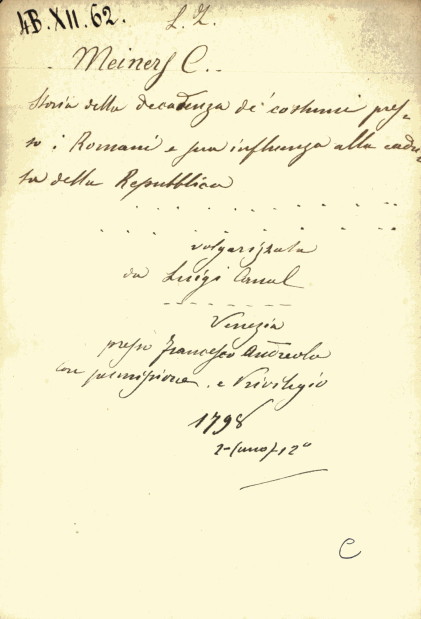 4B.XII.62. L. Z.
Meiners C.
Storia della decadenza de' costumi pres-
so i Romani e sua influenza alla cadu-
ta della Repubblica
volgarizzata
da Luigi Canal
Venezia
presso Francesco Andreola
con permissione e Privilegio
1798
12º
C